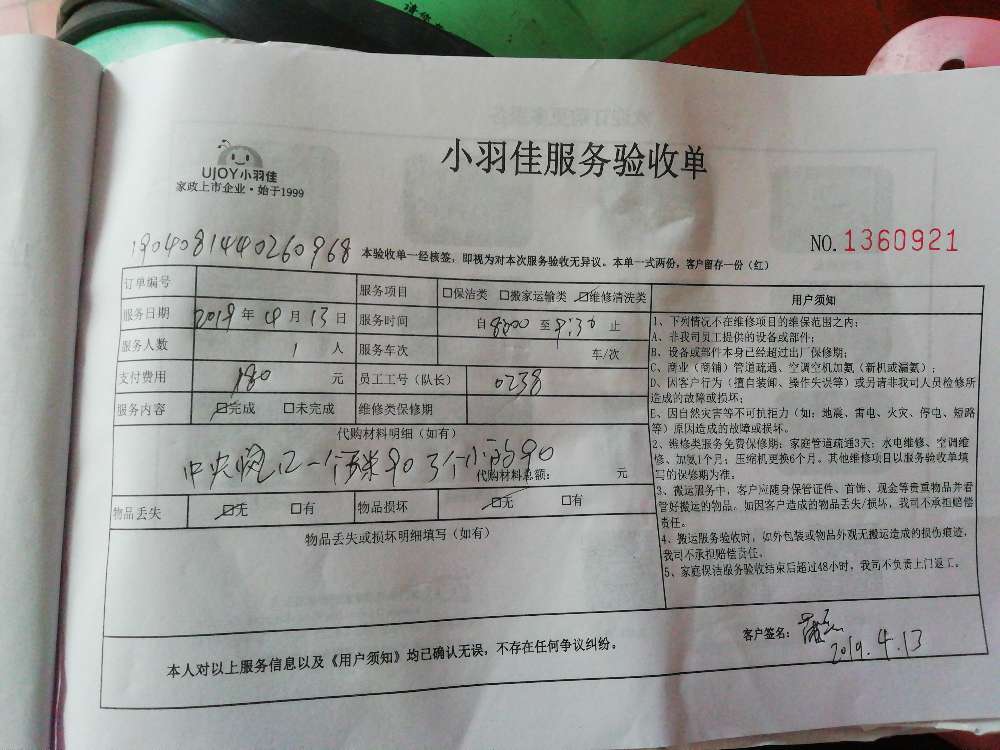 小羽佳服务验收单
UJOY小羽佳
家政上市企业·始于1999
NO.1360921
1904081440260968
本验收单一经核签，即视为对本次服务验收无异议。本单一式两份，客户留存一份（红）
订单编号 服务项目 □保洁类 □搬家运输类 ☑维修清洗类
服务日期 2019年4月13日 服务时间 自8:00至9:30止
服务人数 1人 服务车次 车/次
支付费用 180元 员工工号（队长） 0238
服务内容 ☑完成 □未完成 维修类保修期
代购材料明细（如有）
中央 一个 90 3个小的90
代购材料总额： 元
物品丢失 ☑无 □有 物品损坏 ☑无 □有
物品丢失或损坏明细填写（如有）
用户须知
1、下列情况不在维修项目的维保范围之内：
A、非我司员工提供的设备或部件；
B、设备或部件本身已经超过出厂保修期；
C、商业（商铺）管道疏通、空调空机加氨（新机或漏氨）；
D、因客户行为（擅自装卸、操作失误等）或另请非我司人员检修所
造成的故障或损坏；
E、因自然灾害等不可抗拒力（如：地震、雷电、火灾、停电、短路
等）原因造成的故障或损坏。
2、维修类服务免费保修期：家庭管道疏通3天；水电维修、空调维
修、加氨1个月；压缩机更换6个月。其他维修项目以服务验收单填
写的保修期为准；
3、搬运服务中，客户应随身保管证件、首饰、现金等贵重物品并看
管好搬运的物品。如因客户造成的物品丢失/损坏，我司不承担赔偿
责任。
4、搬运服务验收时，如外包装或物品外观无搬运造成的损伤痕迹，
我司不承担赔偿责任。
5、家庭保洁服务验收结束后超过48小时，我司不负责上门返工。
本人对以上服务信息以及《用户须知》均已确认无误，不存在任何争议纠纷。
客户签名：
2019.4.13